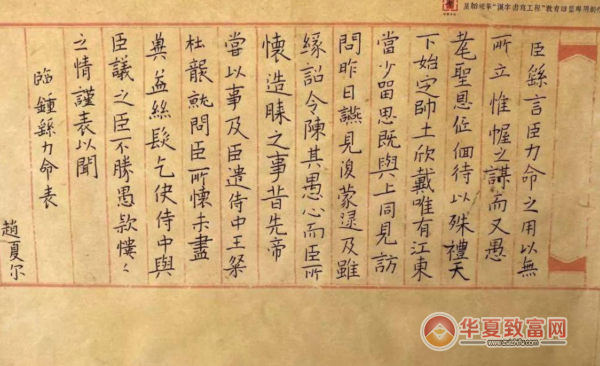 "漢字書寫工程"教育聯盟專用創作
臣繇言臣力命之用以無
所立惟幄之謀而又愚
耄聖恩低佪待以殊禮天
下始定帥土欣戴唯有江東
當少留思既與上同見訪
問昨日讌見復蒙逮及雖
緣詔令陳其愚心而臣所
懷造膝之事昔先帝
嘗以事及臣遣侍中王粲
杜襲就問臣所懷未盡
與益絲髮乞使侍中與
臣議之臣不勝愚款慺〻
之情謹表以聞
臨鍾繇力命表
趙夏尔
华夏致富网